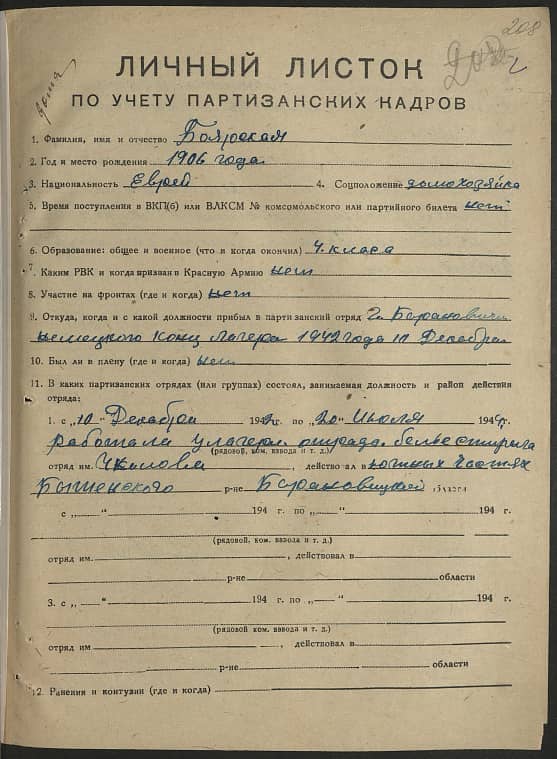 208
ЛИЧНЫЙ ЛИСТОК
ПО УЧЕТУ ПАРТИЗАНСКИХ КАДРОВ
1. Фамилия, имя и отчество Боярская
2. Год и место рождения 1906 года
3. Национальность Еврей 4. Соцположение домохозяйка
5. Время поступления в ВКП(б) или ВЛКСМ № комсомольского или партийного билета нет
6. Образование: общее и военное (что и когда окончил) 4 класа
7. Каким РВК и когда призван в Красную Армию нет
8. Участие на фронтах (где и когда) нет
9. Откуда, когда и с какой должности прибыл в партизанский отряд Г. Баранович
немецкого Конц лагера 1942 года 10 Декабря
10. Был ли в плену (где и когда) нет
11. В каких партизанских отрядах (или группах) состоял, занимаемая должность и район действия
отряда:
1. с „10" Декабря 1942 г. по „20" Июля 1944 г.
работала у лагере отряда белье стирала
(рядовой, ком. взвода и т. д.)
отряд им. Чкалова, действовал в южных частях
Бытенского р-не Барановицкой области
с „ " 194 г. по „ " 194 г.
(рядовой, ком. взвода и т. д.)
отряд им. , действовал в
р-не области
3. с „ " 194 г. по „ " 194 г.
(рядовой ком. взвода и т. д.)
отряд им , действовал в
р-не области
12. Ранения и контузии (где и когда)